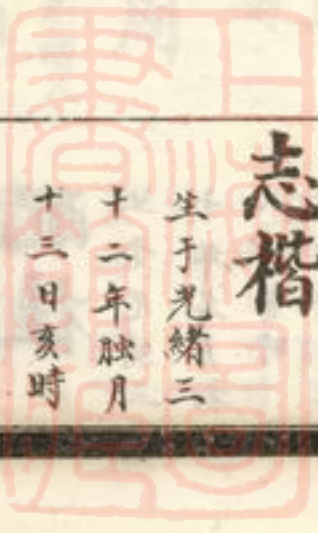 志楷
生于光緒三
十二年腊月
十三日亥時